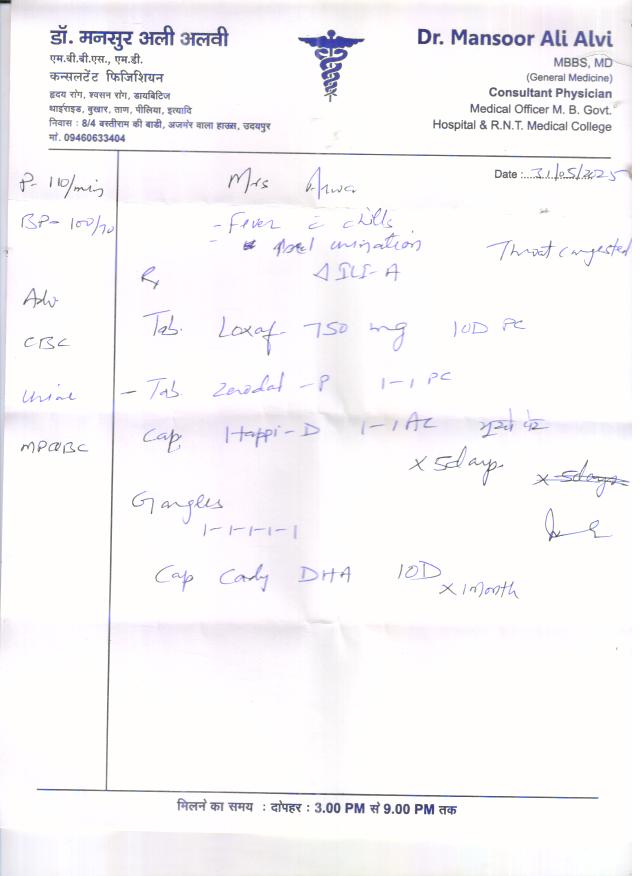 डॉ. मनसुर अली अलवी
एम.बी.बी.एस., एम.डी.
कन्सलटेंट फिजिशियन
हृदय रोग, श्वसन रोग, डायबिटिज
थाईराइड, बुखार, ताण, पीलिया, इत्यादि
निवास : 8/4 बस्तीराम की बाडी, अजमेर वाला हाउस, उदयपुर
मां. 09460633404
Dr. Mansoor Ali Alvi
MBBS, MD
(General Medicine)
Consultant Physician
Medical Officer M. B. Govt.
Hospital & R.N.T. Medical College
Date : 31/05/2025
P- 110/min
Mrs
BP- 100/70
- Fever c̄ chills
urination
Throat congested
Rx
Δ ILI-A
Adv
CBC
Urine
MP
Tab. 750 mg 10D PC
- Tab Zerodol -P 1-1 PC
Cap. Happi-D 1-1 AC
x 5 days
x 5 days
Gargles
1-1-1-1-1
Cap DHA 10D
x 1 Month
मिलने का समय : दोपहर : 3.00 PM से 9.00 PM तक